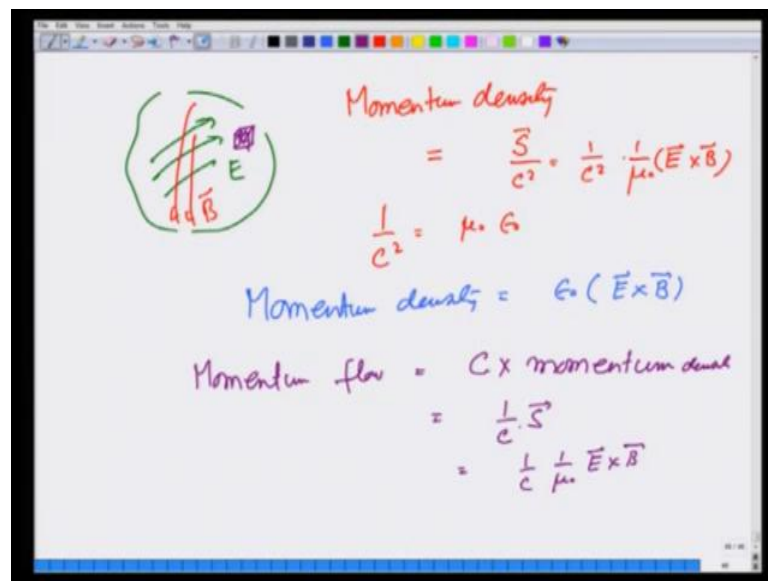 File Edit View Insert Actions Tools Help
Momentum density
= S⃗/c² = 1/c² · 1/μ₀ (E⃗ × B⃗)
E
B⃗
1/c² = μ₀ ε₀
Momentum density = ε₀ (E⃗ × B⃗)
Momentum flow = C × momentum
= 1/c · S⃗
= 1/c 1/μ₀ E⃗ × B⃗